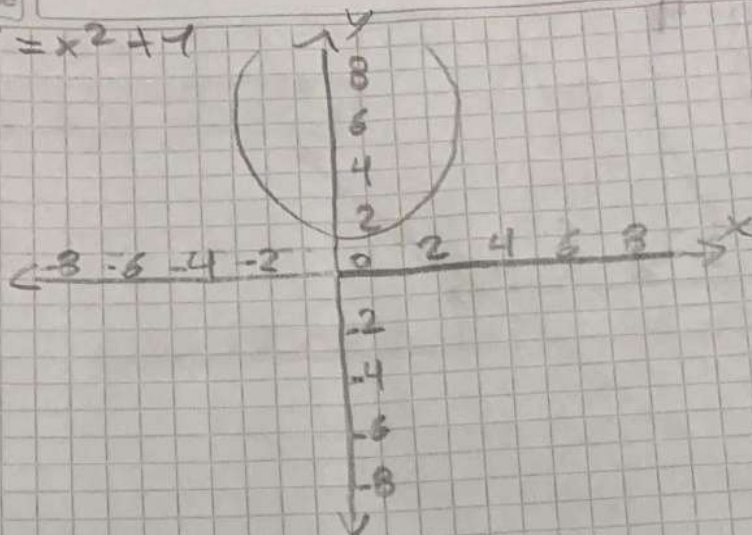 = x² + 1
y
8
6
4
2
-8 -6 -4 -2 0 2 4 6 8 x
-2
-4
-6
-8